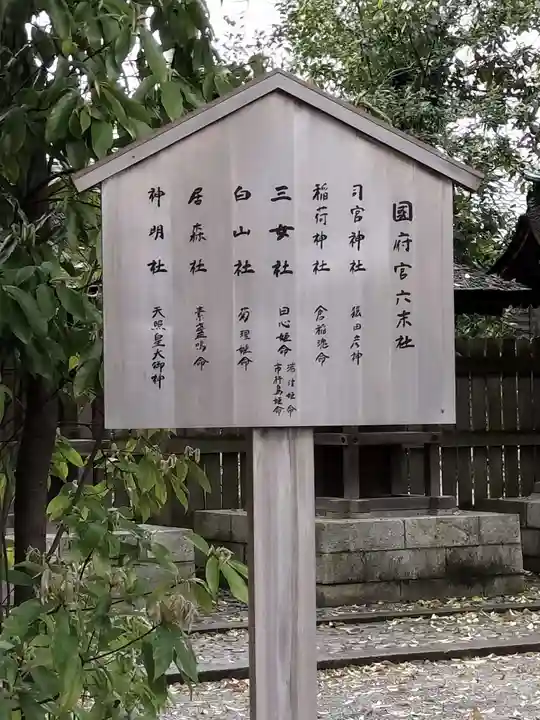 国府宮六末社
司宮神社 猿田彦神
稲荷神社 倉稲魂命
三女社 田心姫命 湍津姫命
市杵島姫命
白山社 菊理姫命
居森社 素盞嗚命
神明社 天照皇大御神